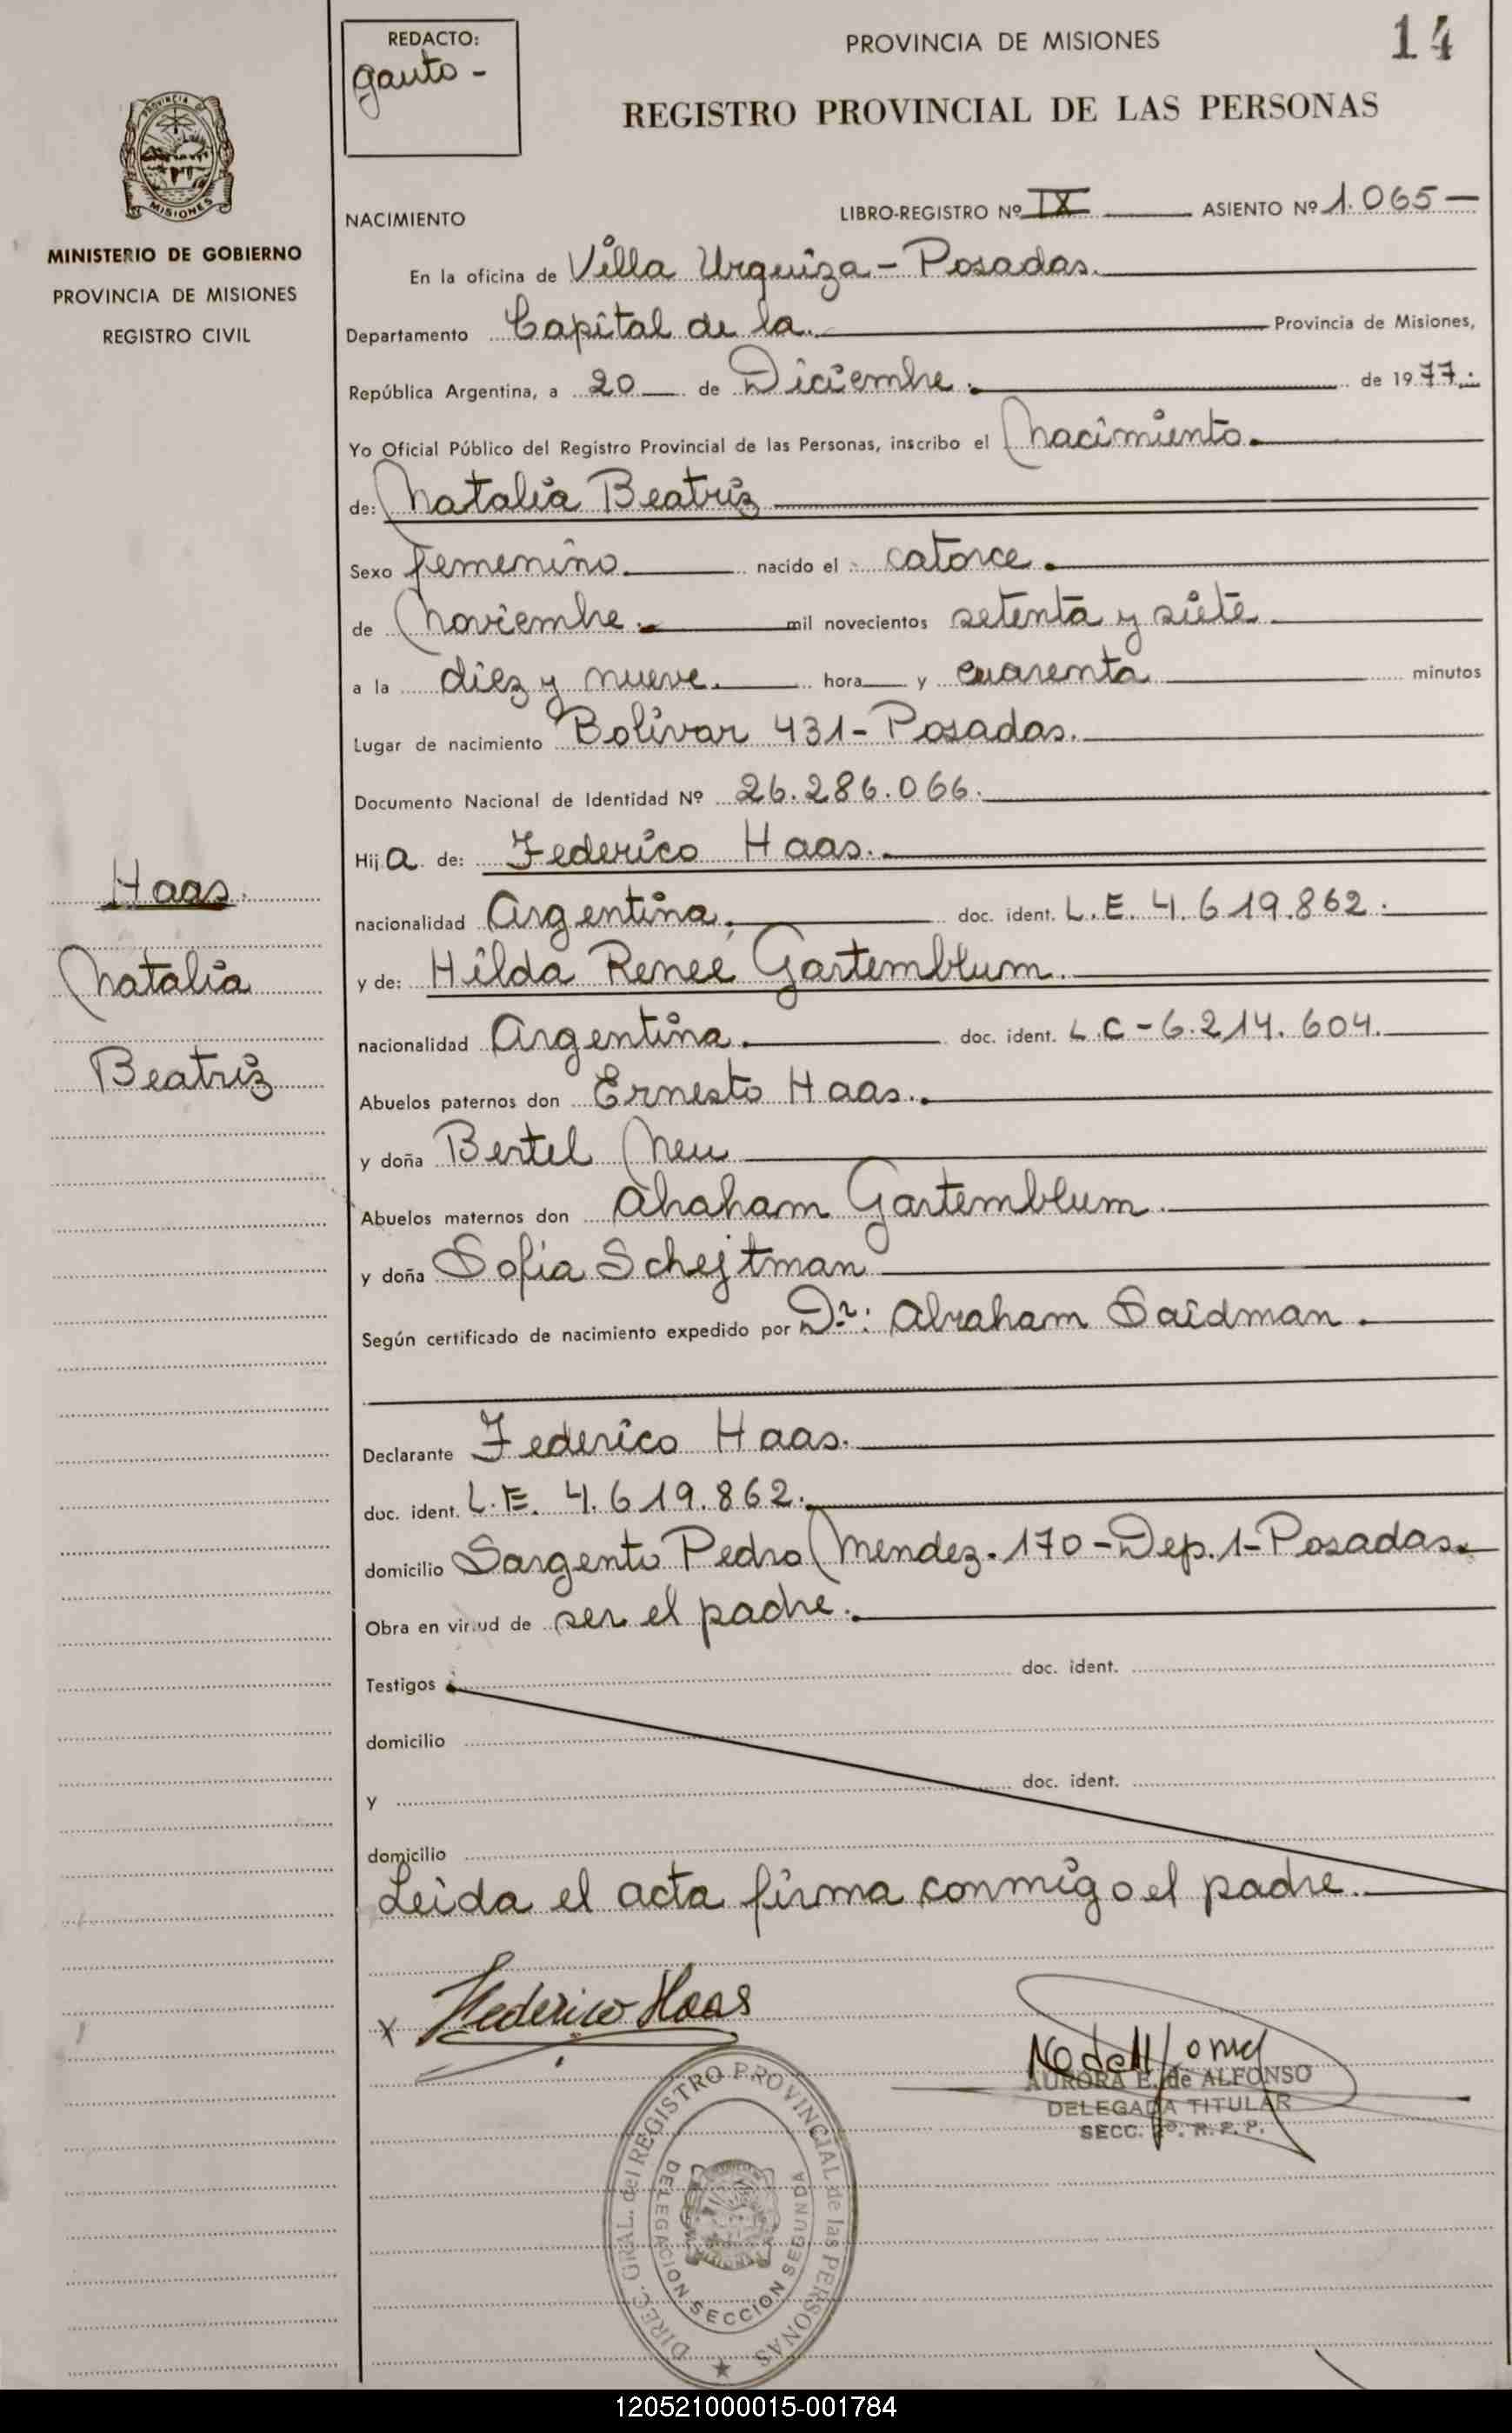 REDACTO:
Gauto -
PROVINCIA DE MISIONES
14
REGISTRO PROVINCIAL DE LAS PERSONAS
MISIONES
MINISTERIO DE GOBIERNO
PROVINCIA DE MISIONES
REGISTRO CIVIL
NACIMIENTO
LIBRO-REGISTRO Nº IX ASIENTO Nº 1.065 —
En la oficina de Villa Urquiza - Posadas.
Departamento Capital de la. Provincia de Misiones,
República Argentina, a 20 de Diciembre. de 1977.
Yo Oficial Público del Registro Provincial de las Personas, inscribo el Nacimiento.
de: Natalia Beatriz
Sexo femenino. nacido el catorce.
de Noviembre. mil novecientos setenta y siete
a la diez y nueve. hora y cuarenta minutos
Lugar de nacimiento Bolívar 431 - Posadas.
Documento Nacional de Identidad Nº 26.286.066.
Hija de: Federico Haas.
nacionalidad Argentina. doc. ident. L.E. 4.619.862.
y de: Hilda Reneé Gartemblum.
nacionalidad Argentina. doc. ident. L.C - 6.214.604.
Abuelos paternos don Ernesto Haas.
y doña Bertel Neu
Abuelos maternos don Abraham Gartemblum.
y doña Sofia Schejtman
Según certificado de nacimiento expedido por Dr: Abraham Saidman.
Declarante Federico Haas.
doc. ident. L.E. 4.619.862.
domicilio Sargento Pedro Mendez. 170 - Dep. 1 - Posadas.
Obra en virtud de ser el padre.
Testigos doc. ident.
domicilio
y doc. ident.
domicilio
Leida el acta firma conmigo el padre.
Haas.
Natalia
Beatriz
x Federico Haas
AURORA E. de ALFONSO
DELEGADA TITULAR
SECC. 2º. R.P.P.
DIREC. GRAL. del REGISTRO PROVINCIAL de las PERSONAS
DELEGACION SECCION SEGUNDA
120521000015-001784